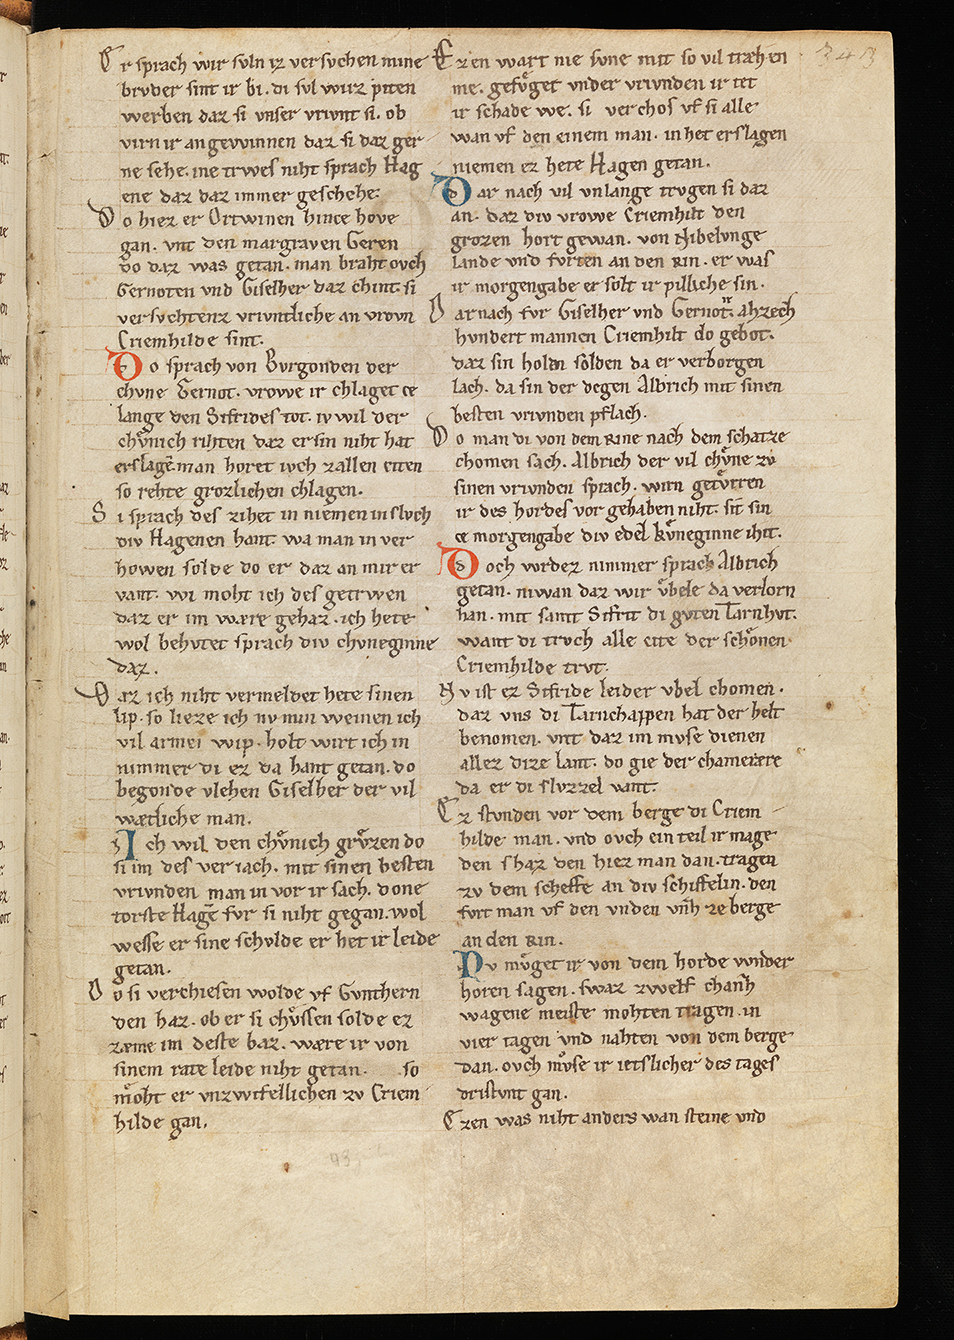 Er sprach wir svln iz versvchen mine
brvder sint ir bi. di svl wirz piten
werben daz si vnser vrivnt si. ob
virn ir an gewinnen daz si daz ger
ne sehe. ine trwes niht sprach Hag
ene daz daz immer geschehe.
Do hiez er Ortwinen hince hove
gan. vnt den margraven Geren
do daz was getan. man braht ovch
Gernoten vnd Giselher daz chint. si
versvchtenz vrivntliche an vrovn
Criemhilde sint.
Do sprach von Bvrgonden der
chvne Gernot. vrowe ir chlaget ce
lange den Sifrides tot. iv wil der
chvͦnich rihten daz er sin niht hat
erslagē. man horet ivch zallen citen
so rehte grozlichen chlagen.
Si sprach des zihet in niemen in slvch
div Hagenen hant. wa man in ver
howen solde do er daz an mir er
vant. wi moht ich des getrwen
daz er im wære gehaz. ich hete
wol behvtet sprach div chvneginne
daz.
Daz ich niht vermeldet hete sinen
lip. so lieze ich nv min weinen ich
vil armez wip. holt wirt ich in
nimmer di ez da hant getan. do
begonde vlehen Giselher der vil
wætliche man.
Ich wil den chvͦnich grvͦzen do
si im des veriach. mit sinen besten
vrivnden man in vor ir sach. done
torste Hagē fvr si niht gegan. wol
wesse er sine schvlde er het ir leide
getan.
Do si verchiesen wolde vf Gvnthern
den haz. ob er si chvͦssen solde ez
zæme im deste baz. wære ir von
sinem rate leide niht getan. so
moͤht er vnzwifellichen zv Criem
hilde gan.
Ezen wart nie svne mit so vil træhen
me. gefvͦget vnder vrivnden ir tet
ir schade we. si verchos vf si alle
wan vf den einem man. in het erslagen
niemen ez hete Hagen getan.
Dar nach vil vnlange trvgen si daz
an. daz div vrowe Criemhilt den
grozen hort gewan. von Nibelvnge
lande vnd fvrten an den rin. er was
ir morgengabe er solt ir pilliche sin.
Darnach fvr Giselher vnd Gernot. ahzech
hvndert mannen Criemhilt do gebot.
daz sin holen solden da er verborgen
lach. da sin der degen Albrich mit sinen
besten vrivnden pflach.
Do man di von dem Rine nach dem schatze
chomen sach. Albrich der vil chvͦne zv
sinen vrivnden sprach. wirn getvͦrren
ir des hordes vor gehaben niht. sit sin
ce morgengabe div edel kvͦneginne iht.
Doch wrdez nimmer sprach Albrich
getan. niwan daz wir vͦbele da verlorn
han. mit samt Sifrit di gvten Tarnhvt.
want di trvch alle cite der schoͤnen
Criemhilde trvt.
Nv ist ez Sifride leider vbel chomen.
daz vns di Tarnchappen hat der helt
benomen. vnt daz im mvse dienen
allez dize lant. do gie der chamerere
da er di slvzzel vant.
Ez stvnden vor dem berge di Criem
hilde man. vnd ovch ein teil ir mage
den shaz den hiez man dan. tragen
zv dem scheffe an div schiffelin. den
fvrt man vf den vnden vn̄h ze berge
an den rin.
Nv mvͦget ir von dem horde wnder
horen sagen. swaz zwelf chanh̄
wagene meiste mohten tragen. in
vier tagen vnd nahten von dem berge
dan. ovch mvͦse ir ietslicher des tages
dristvnt gan.
Ezen was niht anders wan steine vnd